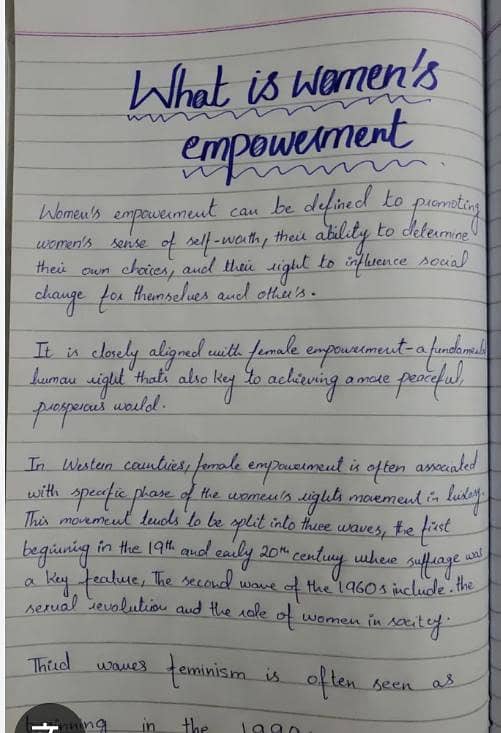 What is women's
empowerment
Women's empowerment can be defined to promoting
women's sense of self-worth, their ability to determine
their own choices, and their right to influence social
change for themselves and other's.
It is closely aligned with female empowerment-a fundamental
human right that's also key to achieving a more peaceful,
prosperous world.
In Western countries, female empowerment is often associated
with specific phase of the women's rights movement in history.
This movement tends to be split into three waves, the first
beginning in the 19th and early 20th century where suffrage was
a key feature, The second wave of the 1960s include. the
sexual revolution and the role of women in socitey.
Third waves feminism is often seen as
beginning in the 1990